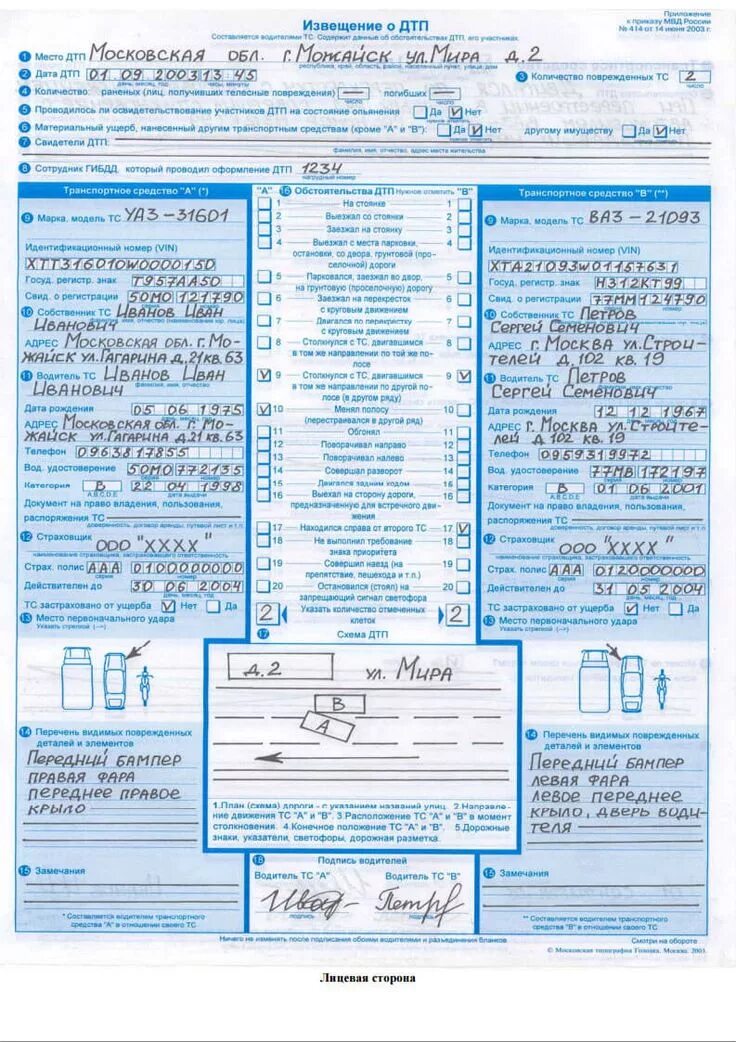 Приложение
к приказу МВД России
№ 414 от 14 июня 2003 г.
Извещение о ДТП
Составляется водителями ТС. Содержит данные об обстоятельствах ДТП, его участниках.
1 Место ДТП Московская обл. г. Можайск ул. Мира д.2
республика, край, область, район, населенный пункт, улица, дом
2 Дата ДТП 01 09 2003 13 45
день, месяц, год часы, минуты
3 Количество поврежденных ТС 2
число
4 Количество раненых (лиц, получивших телесные повреждения) — погибших —
число число
5 Проводилось ли освидетельствование участников ДТП на состояние опьянения Да V Нет
6 Материальный ущерб, нанесенный другим транспортным средствам (кроме "А" и "В") Да V Нет другому имуществу Да V Нет
7 Свидетели ДТП: —
фамилия, имя, отчество, адрес места жительства
8 Сотрудник ГИБДД, который проводил оформление ДТП 1234
нагрудный номер
Транспортное средство "А" (*)
9 Марка, модель ТС УАЗ-31601
Идентификационный номер (VIN)
XTT316010W0000150
Госуд. регистр. знак Т957АА50
Свид. о регистрации 50МО 121790
серия номер
10 Собственник ТС Иванов Иван
Иванович
фамилия, имя, отчество (наименование юр. лица)
Адрес Московская обл. г. Мо-
жайск ул. Гагарина д.21 кв.63
11 Водитель ТС Иванов Иван
Иванович
фамилия, имя, отчество
Дата рождения 05 06 1975
день, месяц, год
Адрес Московская обл. г. Мо-
жайск ул. Гагарина д.21 кв.63
Телефон 0963817855
Вод. удостоверение 50МО 772135
серия номер
Категория В 22 04 1998
A,B,C,D,E дата выдачи
Документ на право владения, пользования,
распоряжения ТС —
доверенность, договор аренды, путевой лист и т.п.
12 Страховщик ООО "ХХХХ"
наименование страховщика, застраховавшего ответственность
Страх. полис ААА 0100000000
серия номер
Действителен до 30 06 2004
день, месяц, год
ТС застраховано от ущерба V Нет Да
13 Место первоначального удара
Указать стрелкой (—>)
14 Перечень видимых поврежденных
деталей и элементов
Передний бампер
правая фара
переднее правое
крыло
15 Замечания
* Составляется водителем транспортного
средства "А" в отношении своего ТС
"А" 16 Обстоятельства ДТП Нужное отметить "В"
1 На стоянке 1
2 Выезжал со стоянки 2
3 Заезжал на стоянку 3
4 Выезжал с места парковки, 4
остановки, со двора, грунтовой (про-
селочной) дороги
5 Парковался, заезжал во двор, 5
на грунтовую (проселочную) дорогу
6 Заезжал на перекресток 6
с круговым движением
7 Двигался по перекрестку 7
с круговым движением
8 Столкнулся с ТС, двигавшимся 8
в том же направлении по той же по-
лосе
V 9 Столкнулся с ТС, двигавшимся 9 V
в том же направлении по другой по-
лосе (в другом ряду)
V 10 Менял полосу 10
(перестраивался в другой ряд)
11 Обгонял 11
12 Поворачивал направо 12
13 Поворачивал налево 13
14 Совершал разворот 14
15 Двигался задним ходом 15
16 Выехал на сторону дороги, 16
предназначенную для встречного дви-
жения
17 Находился справа от второго ТС 17 V
18 Не выполнил требование 18
знака приоритета
19 Совершил наезд (на 19
препятствие, пешехода и т.п.)
20 Остановился (стоял) на 20
запрещающий сигнал светофора
2 Указать количество отмеченных 2
клеток
17 Схема ДТП
д.2 ул. Мира
В
А
1.План (схема) дороги - с указанием названий улиц. 2.Направле-
ние движения ТС "А" и "В". 3.Расположение ТС "А" и "В" в момент
столкновения. 4.Конечное положение ТС "А" и "В". 5.Дорожные
знаки, указатели, светофоры, дорожная разметка.
18 Подпись водителей
Водитель ТС "А" Водитель ТС "В"
Петров
подпись подпись
Транспортное средство "В" (**)
9 Марка, модель ТС ВАЗ-21093
Идентификационный номер (VIN)
XTA21093W01157631
Госуд. регистр. знак Н312КТ99
Свид. о регистрации 77ММ 124790
серия номер
10 Собственник ТС Петров
Сергей Семенович
фамилия, имя, отчество (наименование юр. лица)
Адрес г. Москва ул. Строи-
телей д.102 кв.19
11 Водитель ТС Петров
Сергей Семенович
фамилия, имя, отчество
Дата рождения 12 12 1967
день, месяц, год
Адрес г. Москва ул. Строите-
лей д.102 кв.19
Телефон 0959319972
Вод. удостоверение 77МВ 172197
серия номер
Категория В 01 06 2001
A,B,C,D,E дата выдачи
Документ на право владения, пользования,
распоряжения ТС —
доверенность, договор аренды, путевой лист и т.п.
12 Страховщик ООО "ХХХХ"
наименование страховщика, застраховавшего ответственность
Страх. полис ААА 0120000000
серия номер
Действителен до 31 05 2004
день, месяц, год
ТС застраховано от ущерба V Нет Да
13 Место первоначального удара
Указать стрелкой (—>)
14 Перечень видимых поврежденных
деталей и элементов
Передний бампер
левая фара
левое переднее
крыло, дверь води-
теля
15 Замечания
** Составляется водителем транспортного
средства "В" в отношении своего ТС
Ничего не изменять после подписания обоими водителями и разъединения бланков
Смотри на обороте
© Московская типография Гознака. Москва. 2003.
Лицевая сторона